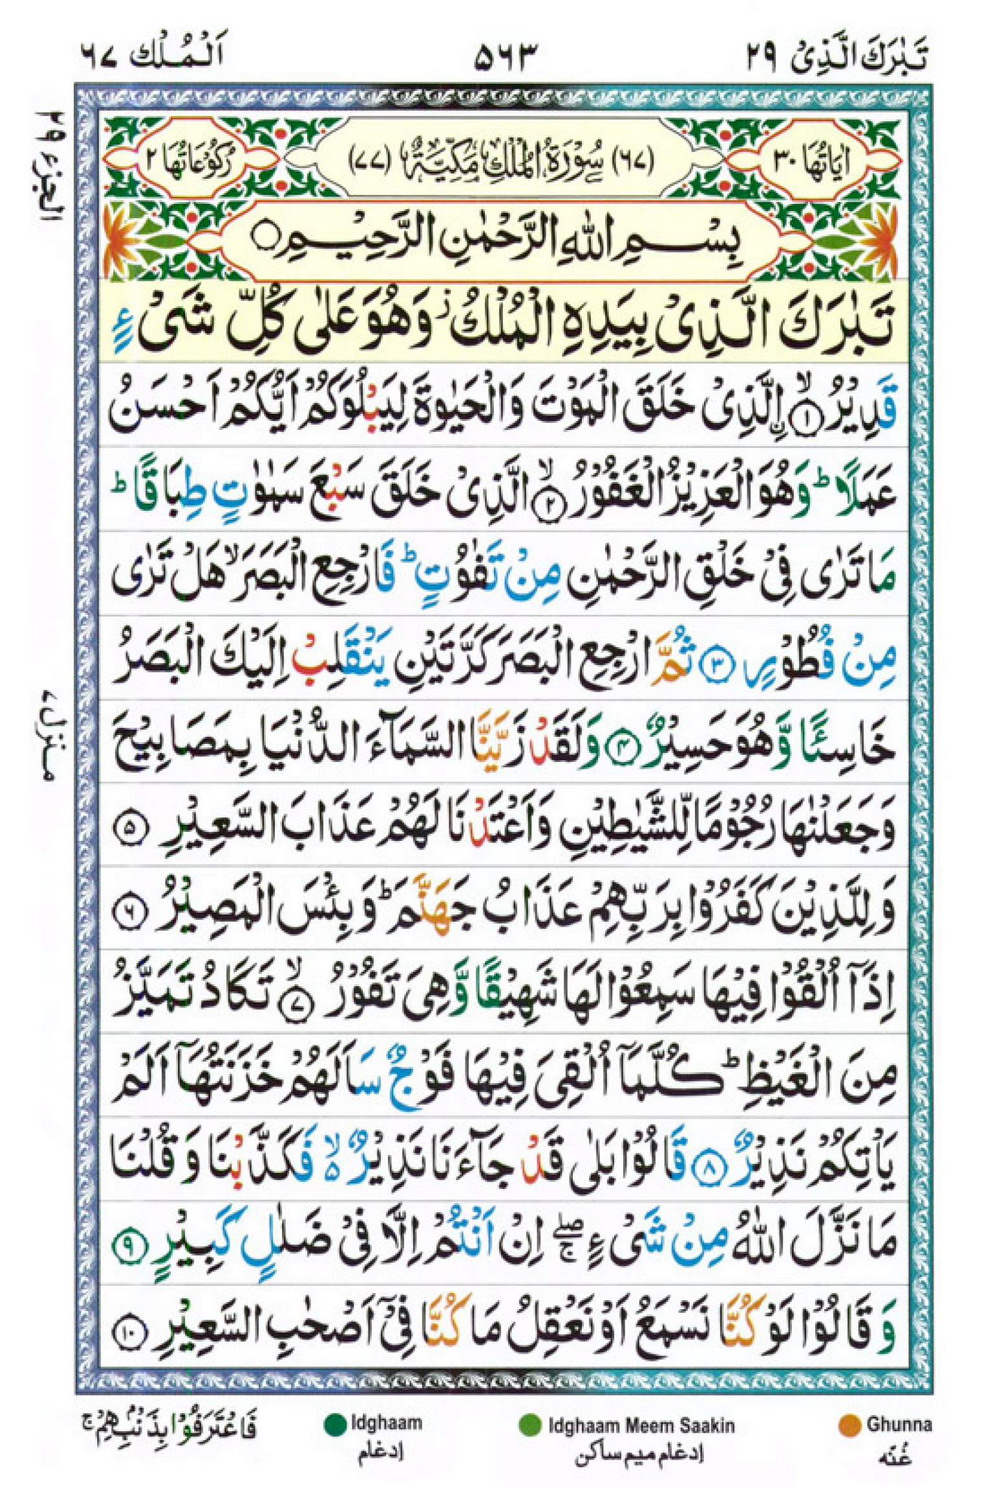 تَبٰرَكَ الَّذِیْ ٢٩
٥٦٣
اَلْمُلْك ٦٧
اٰیَاتُهَا ٣٠
(٦٧) سُوْرَةُ الْمُلْكِ مَكِّیَّةٌ (٧٧)
رُكُوْعَاتُهَا ٢
بِسْمِ اللّٰهِ الرَّحْمٰنِ الرَّحِیْمِ ○
تَبٰرَكَ الَّذِیْ بِیَدِهِ الْمُلْكُ ؗ وَهُوَ عَلٰی كُلِّ شَیْءٍ
قَدِیْرُ ۙ﴿١﴾ اِ۟لَّذِیْ خَلَقَ الْمَوْتَ وَالْحَیٰوةَ لِیَبْلُوَكُمْ اَیُّكُمْ اَحْسَنُ
عَمَلًا ؕ وَهُوَ الْعَزِیْزُ الْغَفُوْرُ ۙ﴿٢﴾ الَّذِیْ خَلَقَ سَبْعَ سَمٰوٰتٍ طِبَاقًا ؕ
مَا تَرٰی فِیْ خَلْقِ الرَّحْمٰنِ مِنْ تَفٰوُتٍ ؕ فَارْجِعِ الْبَصَرَ ۙ هَلْ تَرٰی
مِنْ فُطُوْرٍ ﴿٣﴾ ثُمَّ ارْجِعِ الْبَصَرَ كَرَّتَیْنِ یَنْقَلِبْ اِلَیْكَ الْبَصَرُ
خَاسِئًا وَّهُوَ حَسِیْرٌ ﴿٤﴾ وَلَقَدْ زَیَّنَّا السَّمَآءَ الدُّنْیَا بِمَصَابِیْحَ
وَجَعَلْنٰهَا رُجُوْمًا لِّلشَّیٰطِیْنِ وَاَعْتَدْنَا لَهُمْ عَذَابَ السَّعِیْرِ ﴿٥﴾
وَلِلَّذِیْنَ كَفَرُوْا بِرَبِّهِمْ عَذَابُ جَهَنَّمَ ؕ وَبِئْسَ الْمَصِیْرُ ﴿٦﴾
اِذَاۤ اُلْقُوْا فِیْهَا سَمِعُوْا لَهَا شَهِیْقًا وَّهِیَ تَفُوْرُ ۙ﴿٧﴾ تَكَادُ تَمَیَّزُ
مِنَ الْغَیْظِ ؕ كُلَّمَاۤ اُلْقِیَ فِیْهَا فَوْجٌ سَاَلَهُمْ خَزَنَتُهَاۤ اَلَمْ
یَاْتِكُمْ نَذِیْرٌ ﴿٨﴾ قَالُوْا بَلٰی قَدْ جَآءَنَا نَذِیْرٌ ۙ۬ فَكَذَّبْنَا وَقُلْنَا
مَا نَزَّلَ اللّٰهُ مِنْ شَیْءٍ ۖۚ اِنْ اَنْتُمْ اِلَّا فِیْ ضَلٰلٍ كَبِیْرٍ ﴿٩﴾
وَقَالُوْا لَوْ كُنَّا نَسْمَعُ اَوْ نَعْقِلُ مَا كُنَّا فِیْۤ اَصْحٰبِ السَّعِیْرِ ﴿١٠﴾
فَاعْتَرَفُوْا بِذَنْۢبِهِمْ ۚ
الجزء ٢٩
منزل ٧
Idghaam
إدغام
Idghaam Meem Saakin
إدغام میم ساكن
Ghunna
غُنّه